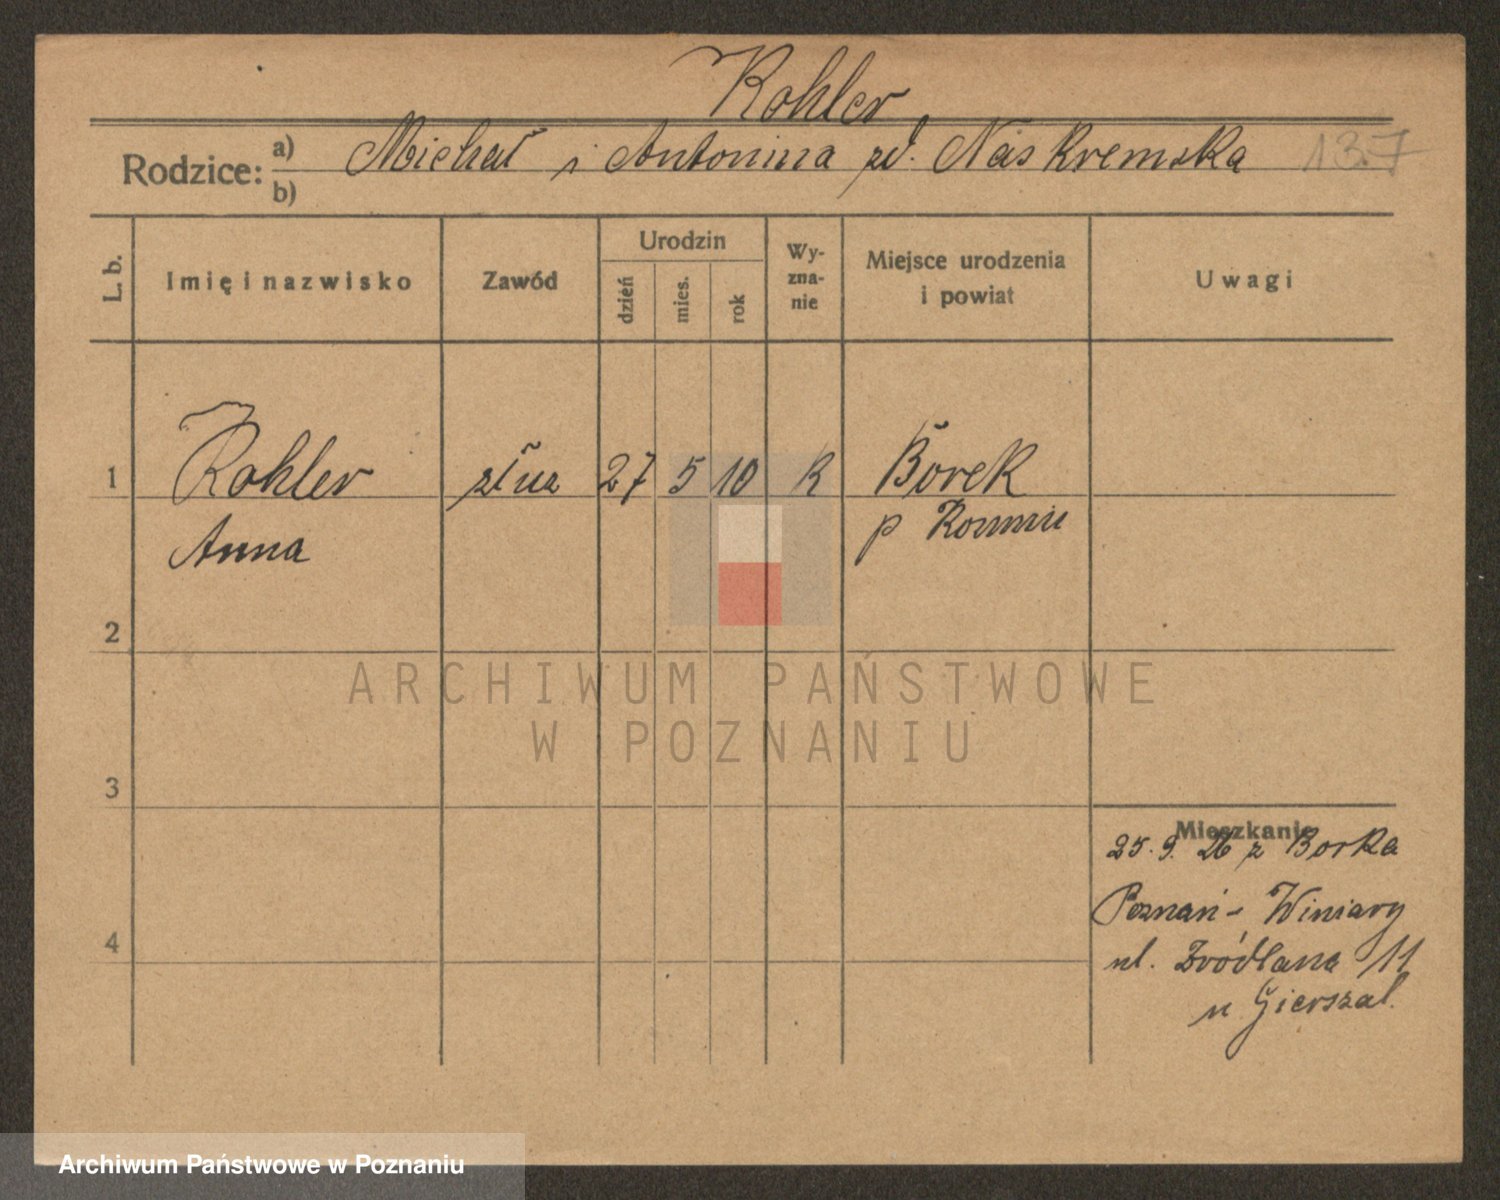 Kohler
Rodzice: a) Michał i Antonina zd. Naskremska 137
b)
L. b.
Imię i nazwisko
Zawód
Urodzin
dzień
mies.
rok
Wy-
zna-
nie
Miejsce urodzenia
i powiat
Uwagi
1 Kohler 27 5 10 k Borek
Anna p
2
3
4
Mieszkanie
25. 9. 26 z Borka
Poznań - Winiary
ul. Źródlana 11
u Gierszal.
ARCHIWUM PAŃSTWOWE
W POZNANIU
Archiwum Państwowe w Poznaniu